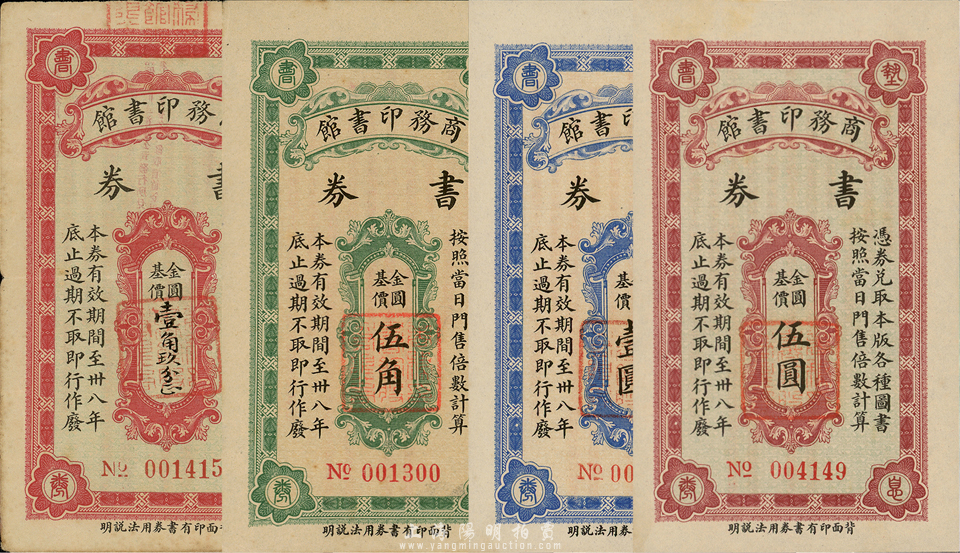 書
商務印書館
書券
金圓
基價
壹角玖分
本券有效期間至卅八年
底止過期不取即行作廢
№ 001415
背面印有書券用法說明
書
商務印書館
書券
按照當日門售倍數計算
金圓
基價
伍角
本券有效期間至卅八年
底止過期不取即行作廢
№ 001300
背面印有書券用法說明
書
印書館
券
金圓
基價
壹圓
本券有效期間至卅八年
底止過期不取即行作廢
№ 00
券用法說明
書
商務印書館
書券
憑券兌取本版各種圖書
按照當日門售倍數計算
金圓
基價
伍圓
本券有效期間至卅八年
底止過期不取即行作廢
№ 004149
背面印有書券用法說明
陽明拍賣
www.yangmingauction.com